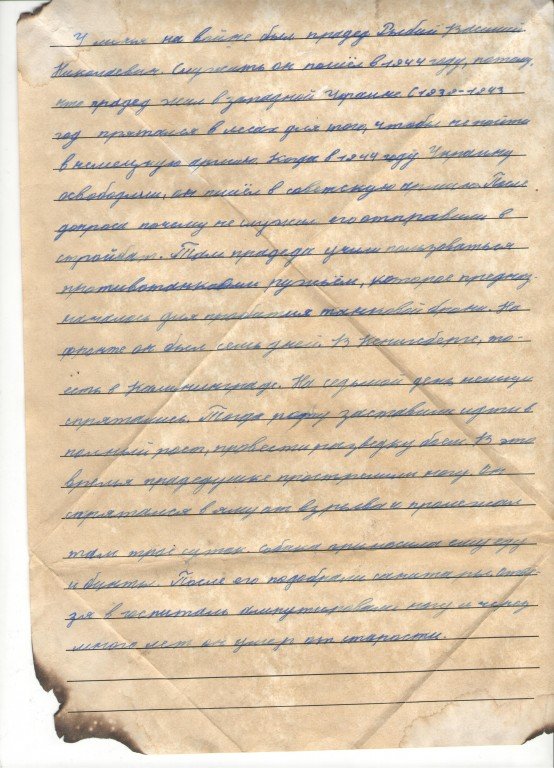 У меня на войне был прадед Рыбий Василий
Николаевич. Служить он пошёл в 1944 году, потому,
что прадед жил в западной Украине С 1939-1943
год прятался в лесах для того, чтобы не пойти
в немецкую армию. Когда в 1944 году Украину
освободили, он пошёл в советскую армию. После
допроса почему не служил его отправили в
стройбат. Там прадеда учили пользоваться
противотанковым ружьём, которое предназ-
началось для пробития танковой брони. На
фронте он был семь дней. В Кенигсберге, то-
есть в Калининграде. На седьмой день немцы
спрятались. Тогда роту заставили идти в
полный рост, провести разведку боем. В это
время прадедушке прострелили ногу. Он
спрятался в яму от взрыва и пролежал
там трое суток. собака приносила ему еду
и бинты. После его подобрали санитары,
в госпиталь ампутировали ногу и через
много лет он умер от старости.